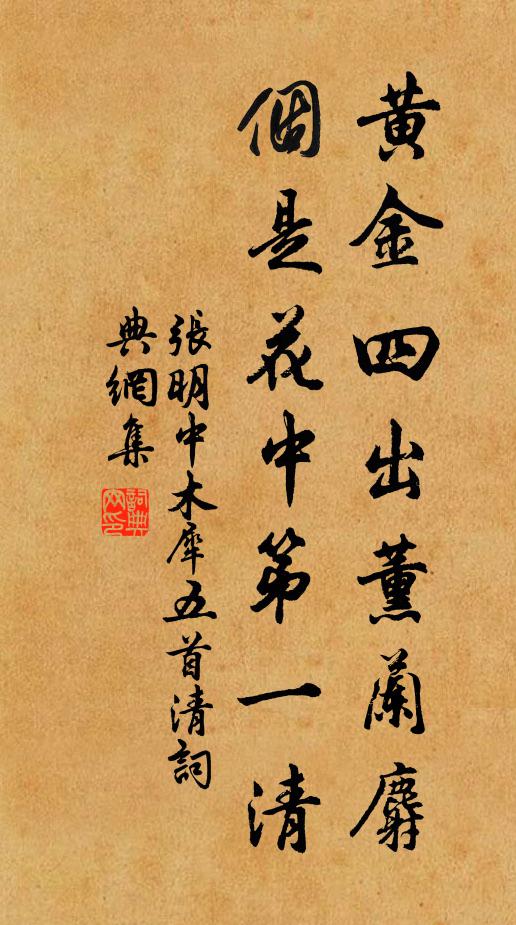 黄金四出薰蘭麝
個是花中第一清
張明中木犀五首清詞
典網集
詞典
网印